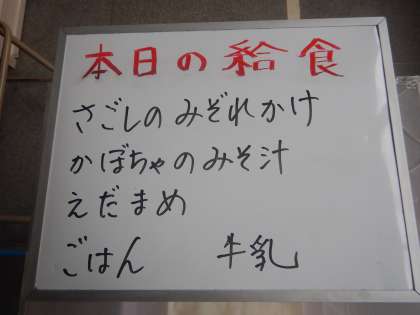 本日の給食
さごしのみぞれかけ
かぼちゃのみそ汁
えだまめ
ごはん　牛乳